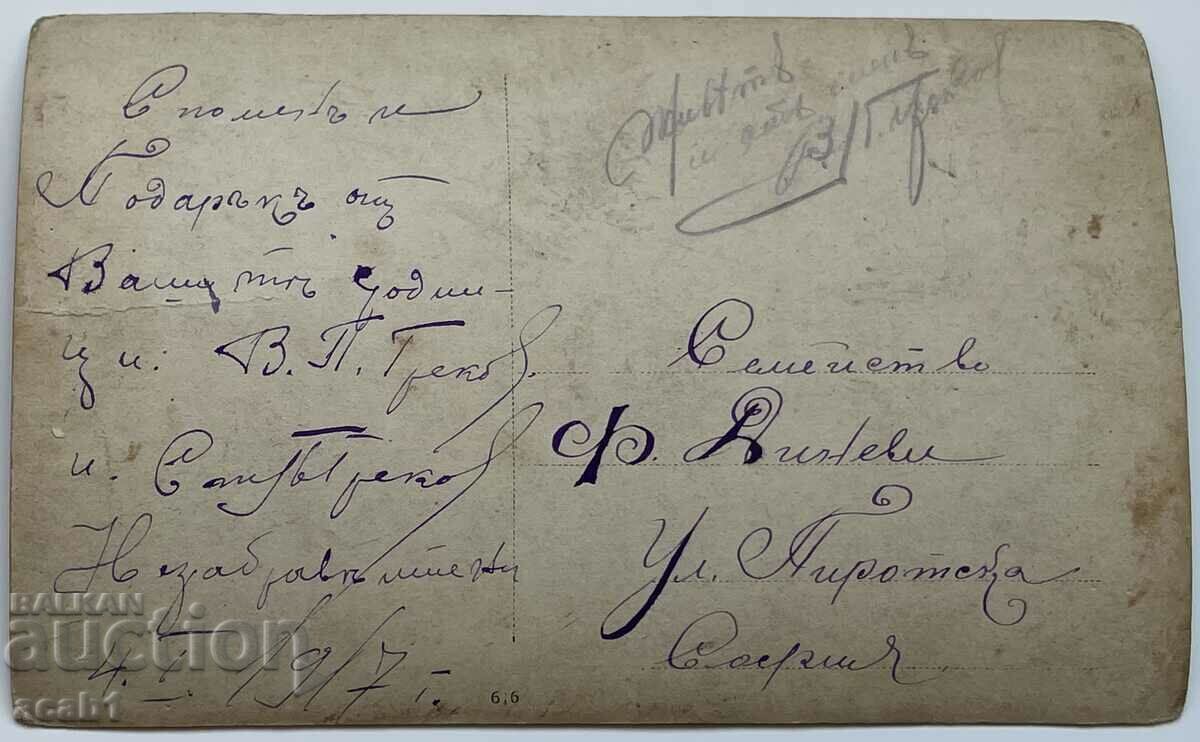 Споменъ и
Подаръкъ отъ
Вашитъ годни-
ци: В. П. Греков.
и. Ст. П. Греков
Незабравъ
4. I. 1917 г.
6,6
и
В. П. Греков
Семейство
Ф. Диневи
Ул. Пиротска
София
BALKAN
auction
acab1